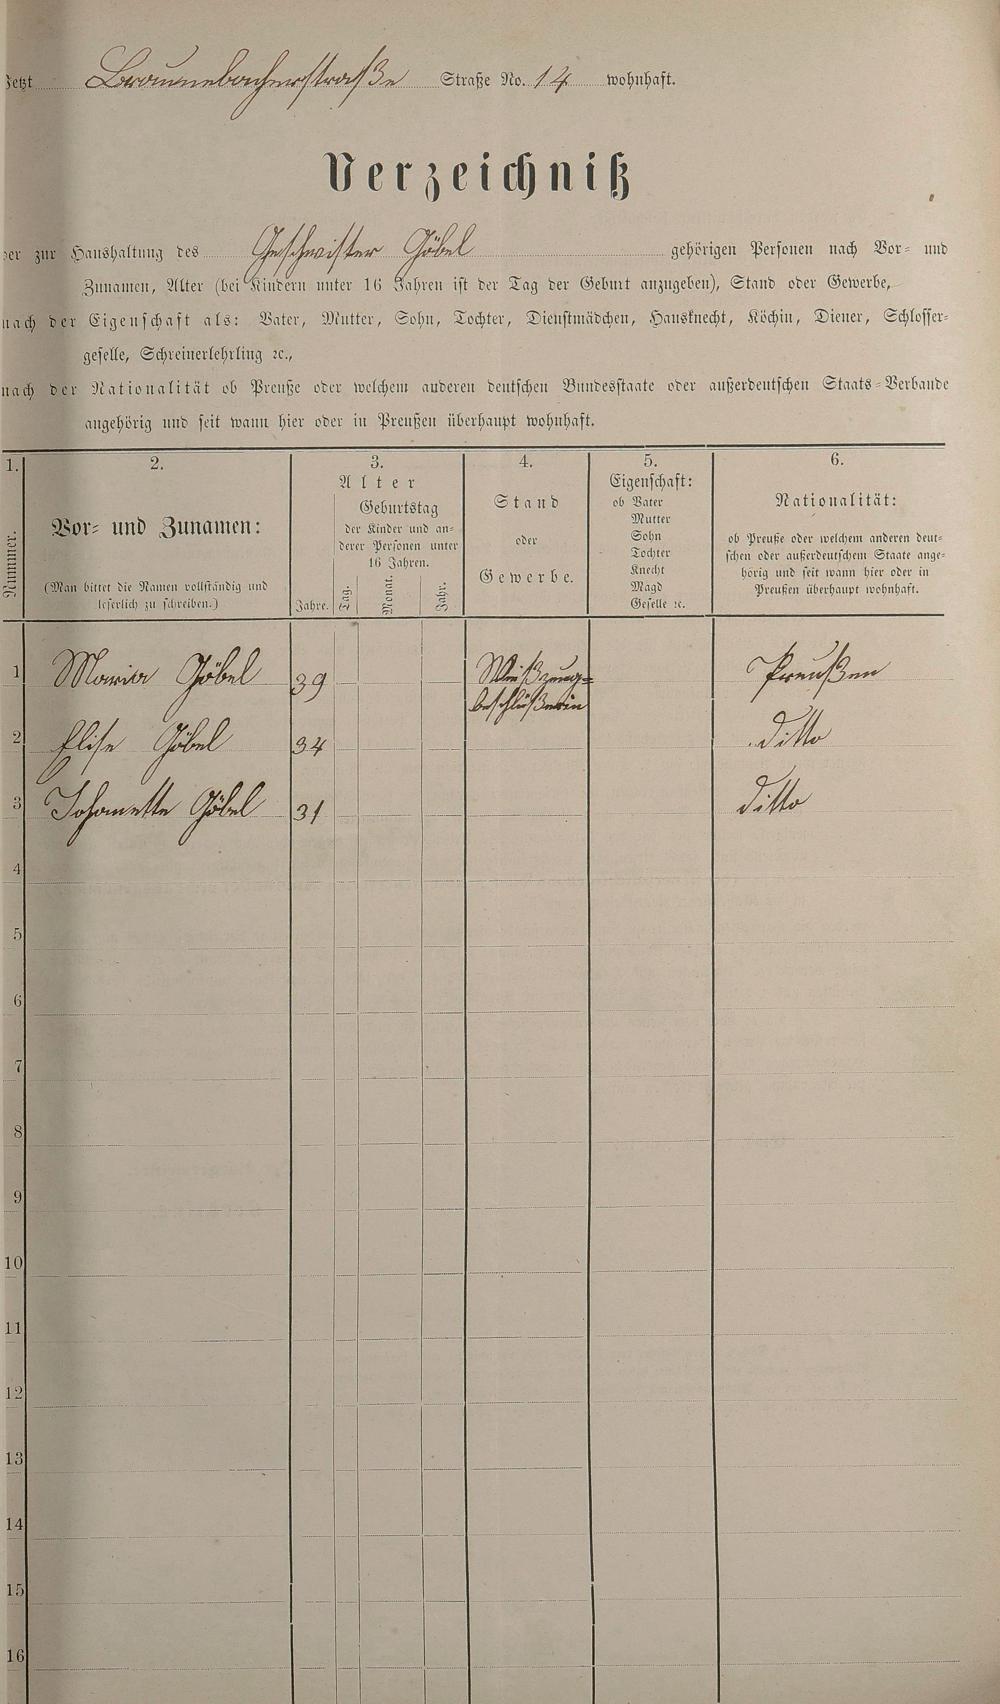 Jetzt Braunebacherstraße Straße No. 14 wohnhaft.
Verzeichniß
der zur Haushaltung des Geschwister Göbel gehörigen Personen nach Vor- und
Zunamen, Alter (bei Kindern unter 16 Jahren ist der Tag der Geburt anzugeben), Stand oder Gewerbe,
nach der Eigenschaft als: Vater, Mutter, Sohn, Tochter, Dienstmädchen, Hausknecht, Köchin, Diener, Schlosser-
geselle, Schreinerlehrling ꝛc.,
nach der Nationalität ob Preuße oder welchem anderen deutschen Bundesstaate oder außerdeutschen Staats-Verbande
angehörig und seit wann hier oder in Preußen überhaupt wohnhaft.
1.
Nummer.
2.
Vor- und Zunamen:
(Man bittet die Namen vollständig und
leserlich zu schreiben.)
3.
Alter
Jahre.
Geburtstag
der Kinder und an-
derer Personen unter
16 Jahren.
Tag.
Monat.
Jahr.
4.
Stand
oder
Gewerbe.
5.
Eigenschaft:
ob Vater
Mutter
Sohn
Tochter
Knecht
Magd
Geselle ꝛc.
6.
Nationalität:
ob Preuße oder welchem anderen deut-
schen oder außerdeutschem Staate ange-
hörig und seit wann hier oder in
Preußen überhaupt wohnhaft.
1 Maria Göbel 39 Weißzeug- Preußen
beschließerin
2 Elise Göbel 34 ditto
3 Johanette Göbel 31 ditto
4
5
6
7
8
9
10
11
12
13
14
15
16